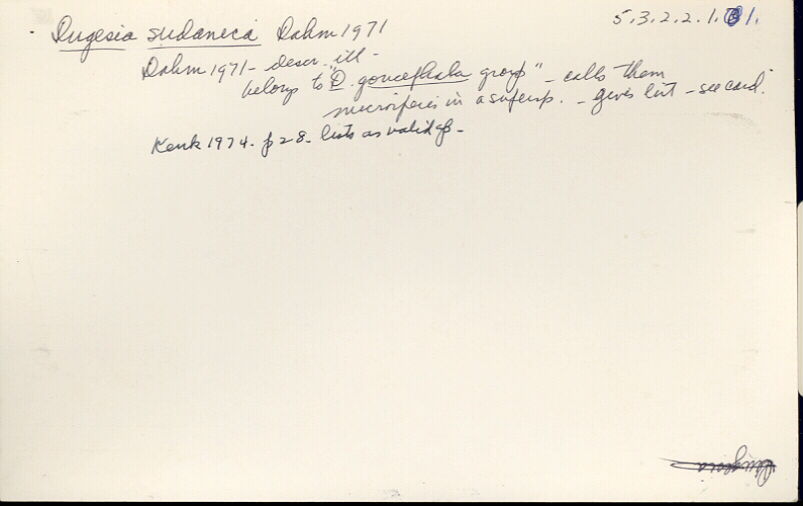 Dugesia sudanica Dahm 1971
5.3.2.2.1. 1.
Dahm 1971 - descr. ill -
belong to "D. gonocephala group" - calls them
microspecies in a supersp. - gives list - see card.
Kenk 1974. p 28 - lists as valid sp -
Dugesia